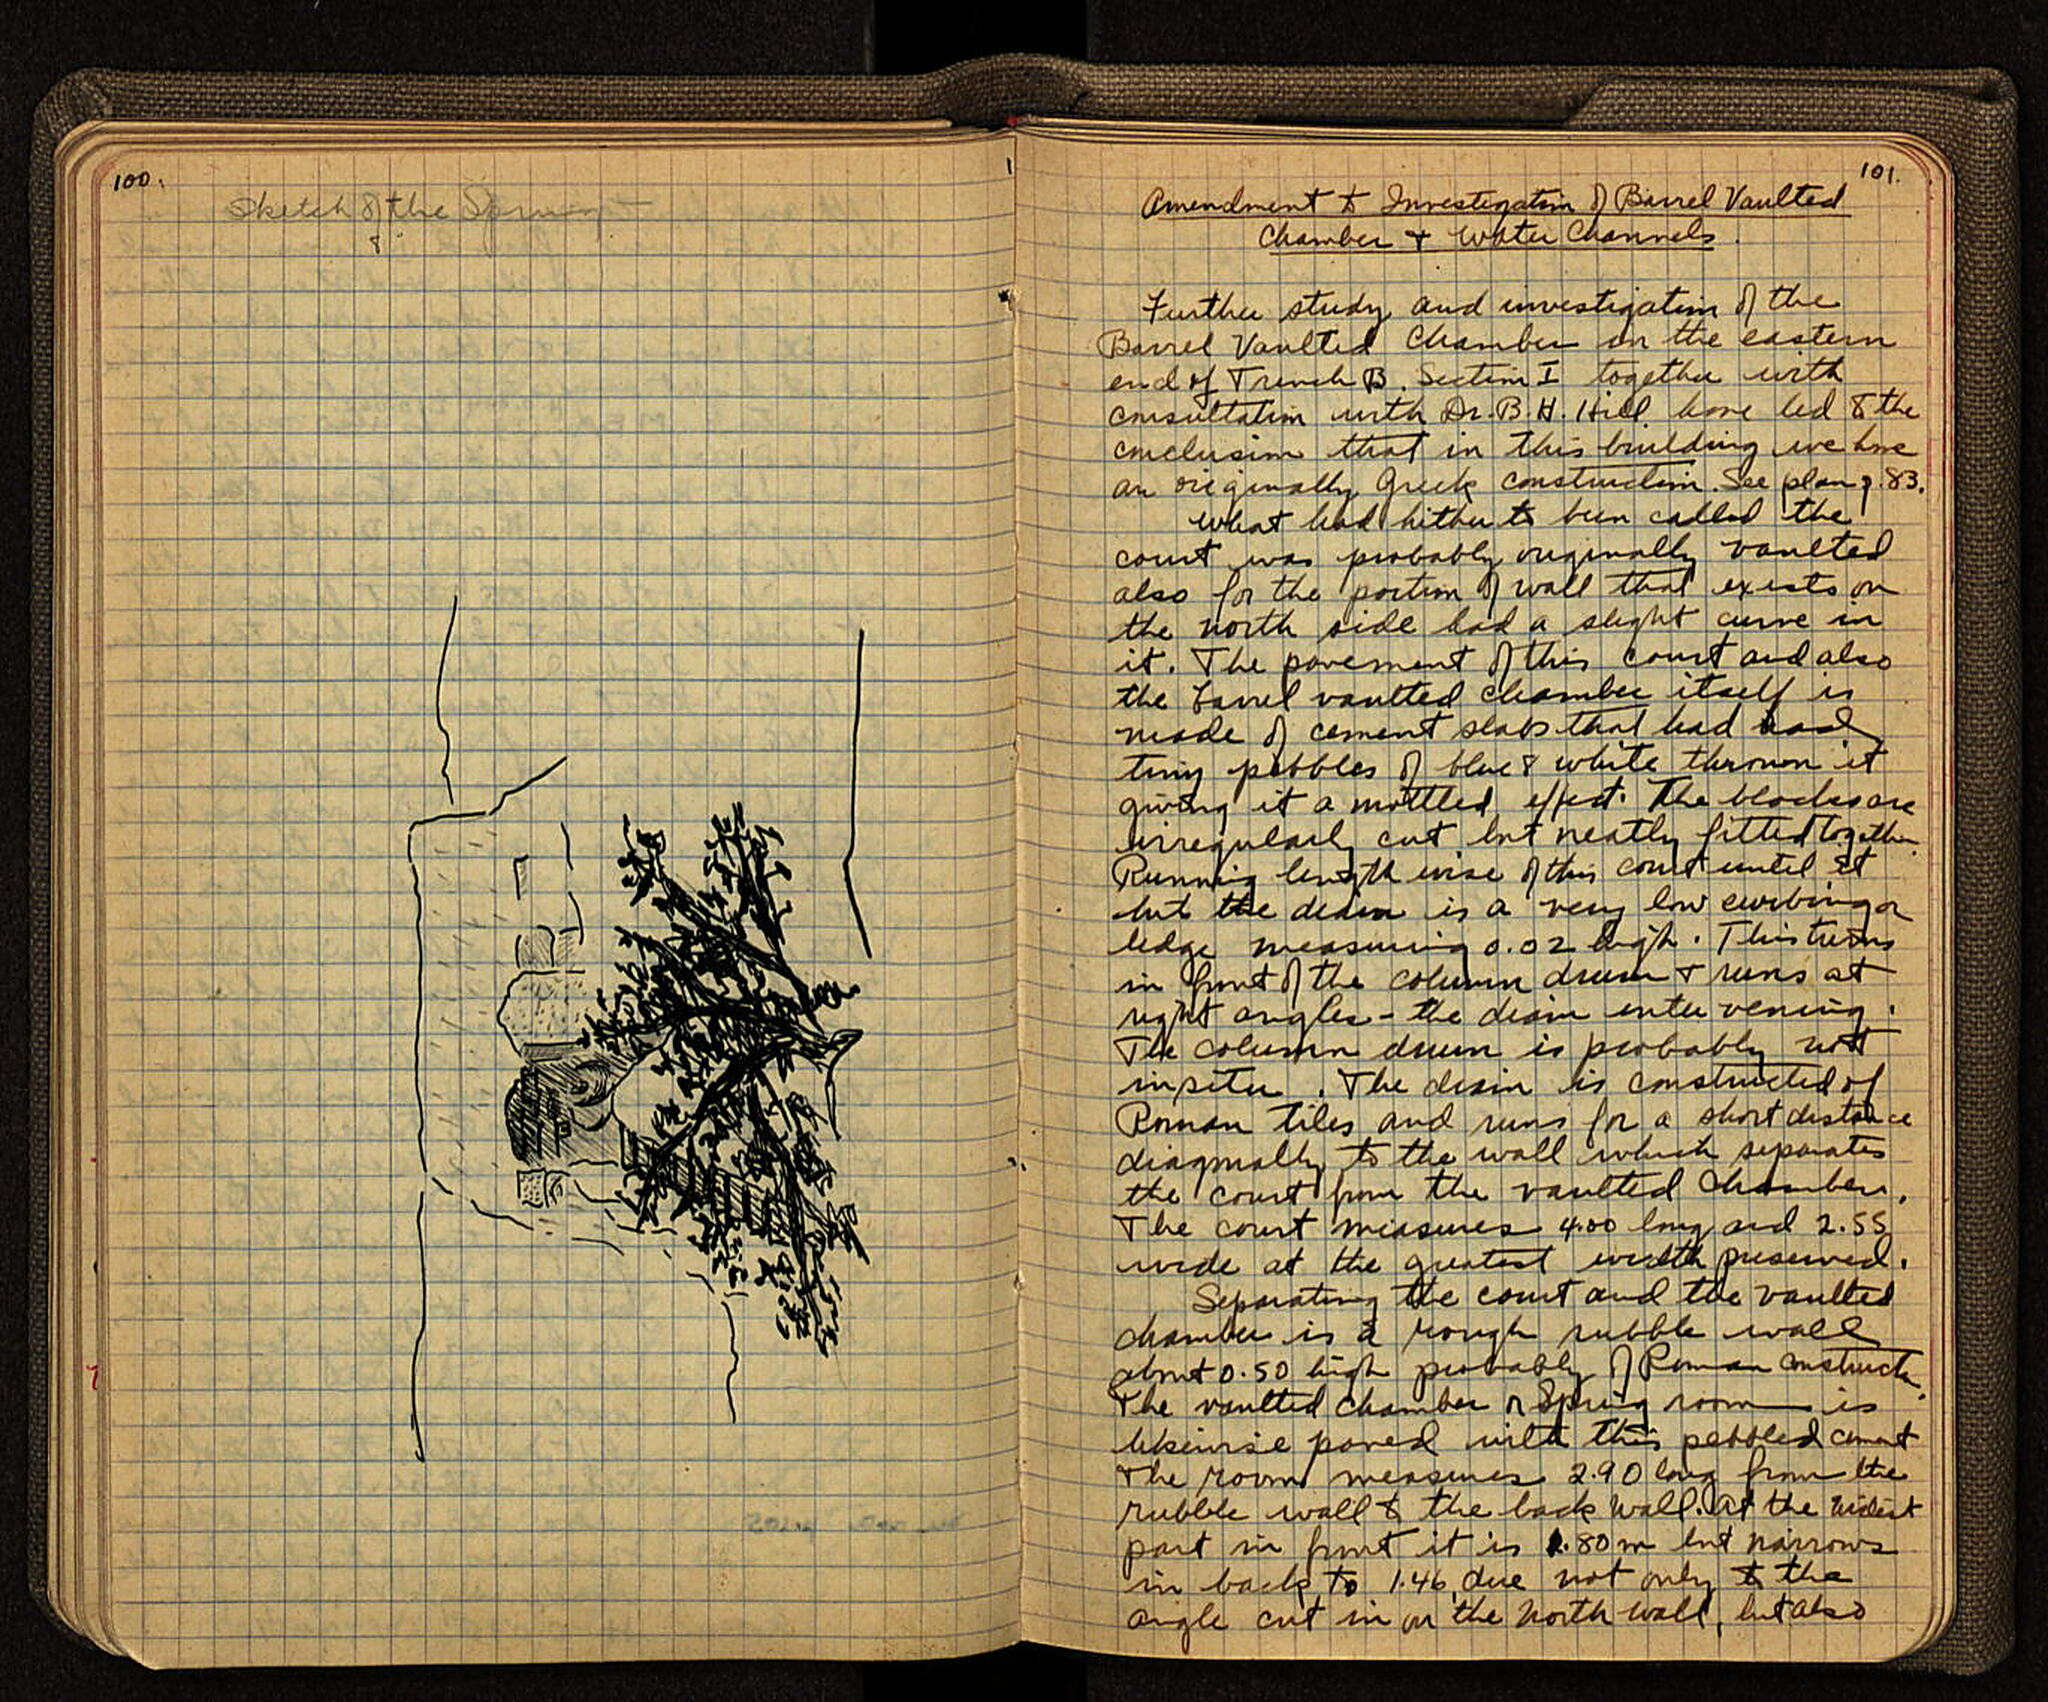 100.
Sketch of the Spring
&
101.
Amendment to Investigation of Barrel Vaulted
Chamber + Water Channels.
Further study and investigation of the
Barrel Vaulted Chamber on the eastern
end of Trench B. Section I together with
consultation with Dr. B. H. Hill have led to the
conclusion that in this building we have
an originally Greek construction. See plan p. 83.
What had hitherto been called the
court was probably originally vaulted
also for the portion of wall that exists on
the north side had a slight curve in
it. The pavement of this court and also
the barrel vaulted chamber itself is
made of cement slabs that had had
tiny pebbles of blue & white thrown it
giving it a mottled effect. The blocks are
irregularly cut but neatly fitted together.
Running length wise of this court until it
hit the drain is a very low curbing or
ledge measuring 0.02 high. This turns
in front of the column drum + runs at
right angles - the drain intervening.
The column drum is probably not
in situ. The drain is constructed of
Roman tiles and runs for a short distance
diagonally to the wall which separates
the court from the vaulted chamber.
The court measures 4.00 long and 2.55
wide at the greatest width preserved.
Separating the court and the vaulted
chamber is a rough rubble wall
about 0.50 high probably of Roman constructn.
The vaulted chamber or Spring room is
likewise paved with this pebbled cement
The room measures 2.90 long from the
rubble wall to the back wall. At the widest
part in front it is 1.80 m but narrows
in back to 1.46, due not only to the
angle cut in on the North wall, but also